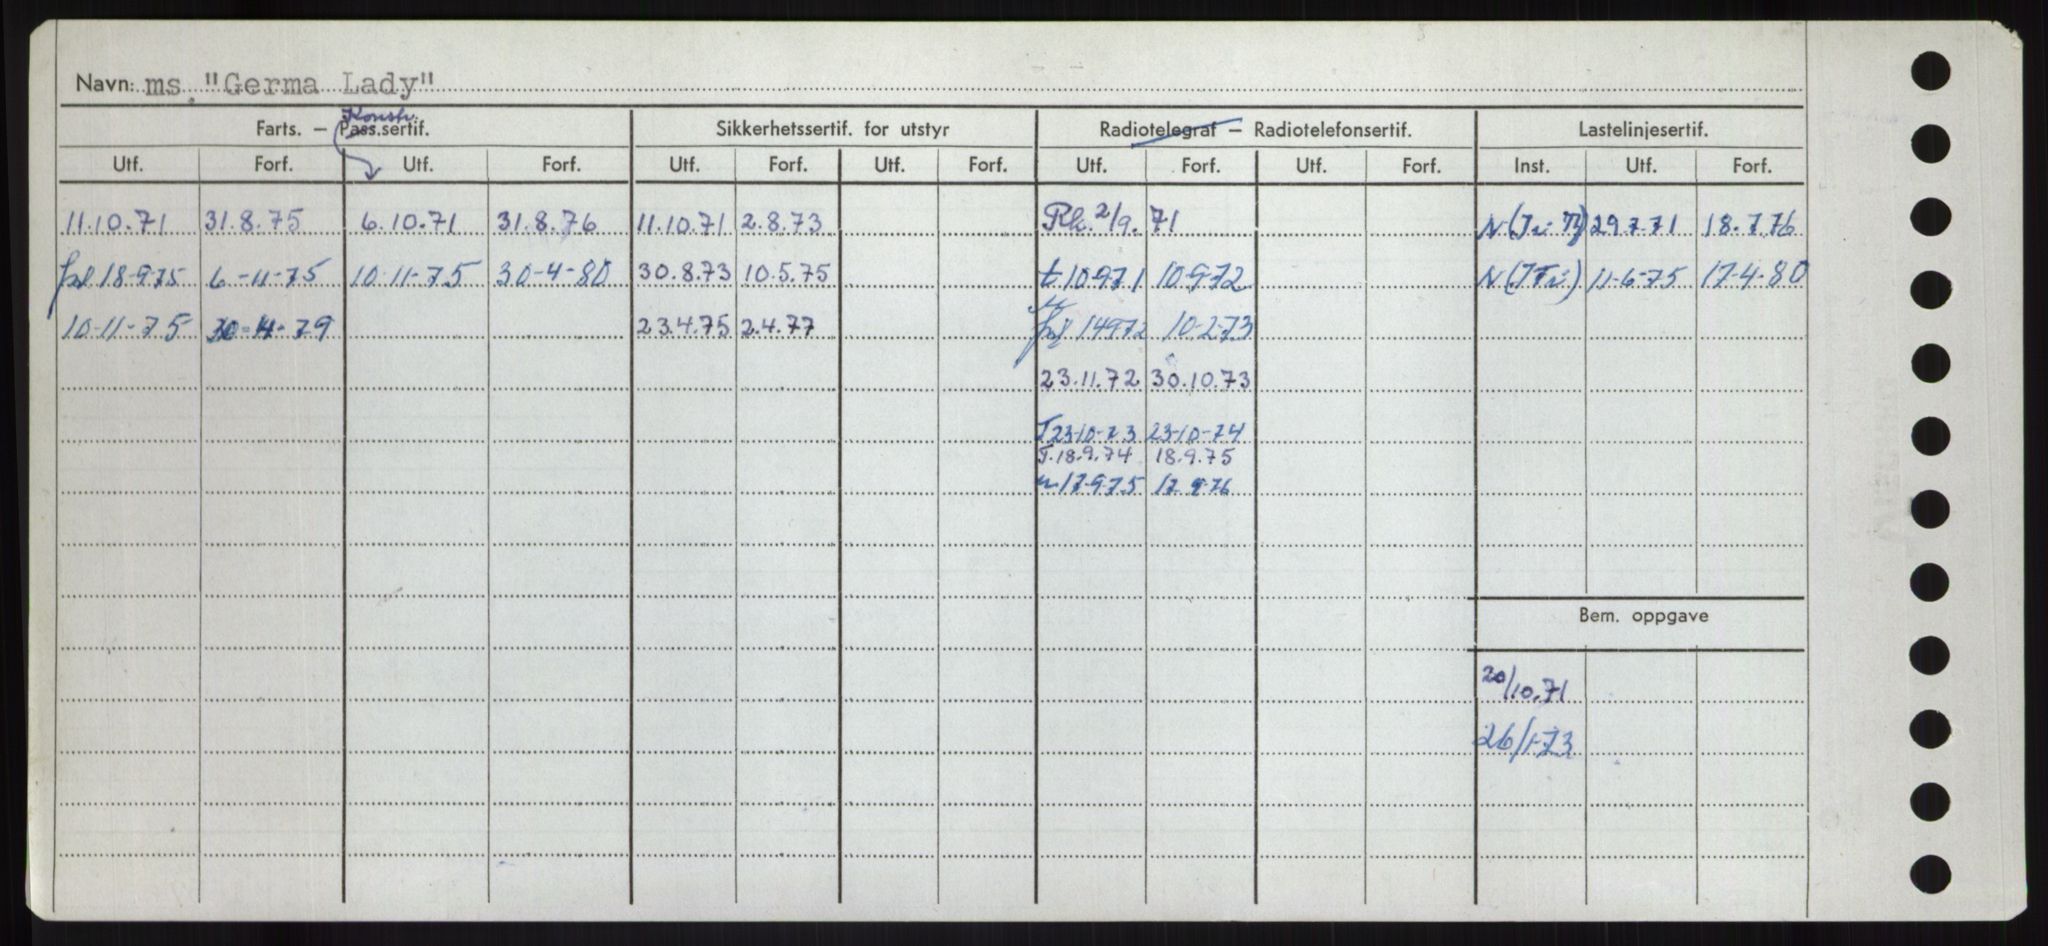 Navn: ms. "Germa Lady"
Konstr.
Farts. – Pass.sertif. Sikkerhetssertif. for utstyr Radiotelegraf – Radiotelefonsertif. Lastelinjesertif.
Utf. Forf. Utf. Forf. Utf. Forf. Utf. Forf. Utf. Forf. Utf. Forf. Inst. Utf. Forf.
11.10.71 31.8.75 6.10.71 31.8.76 11.10.71 2.8.73 2/9.71 29.7.71 18.7.76
18-9-75 6-11-75 10-11-75 30-4-80 30.8.73 10.5.75 t 10-9-71 10-9-72 11-6-75 17-4-80
10-11-75 30-4-79 23.4.75 2.4.77 14-9-72 10-2-73
23.11.72 30.10.73
T 23-10-73 23-10-74
T. 18.9.74 18.9.75
17-9-75 17-9-76
Bem. oppgave
20/10.71
26/1-73